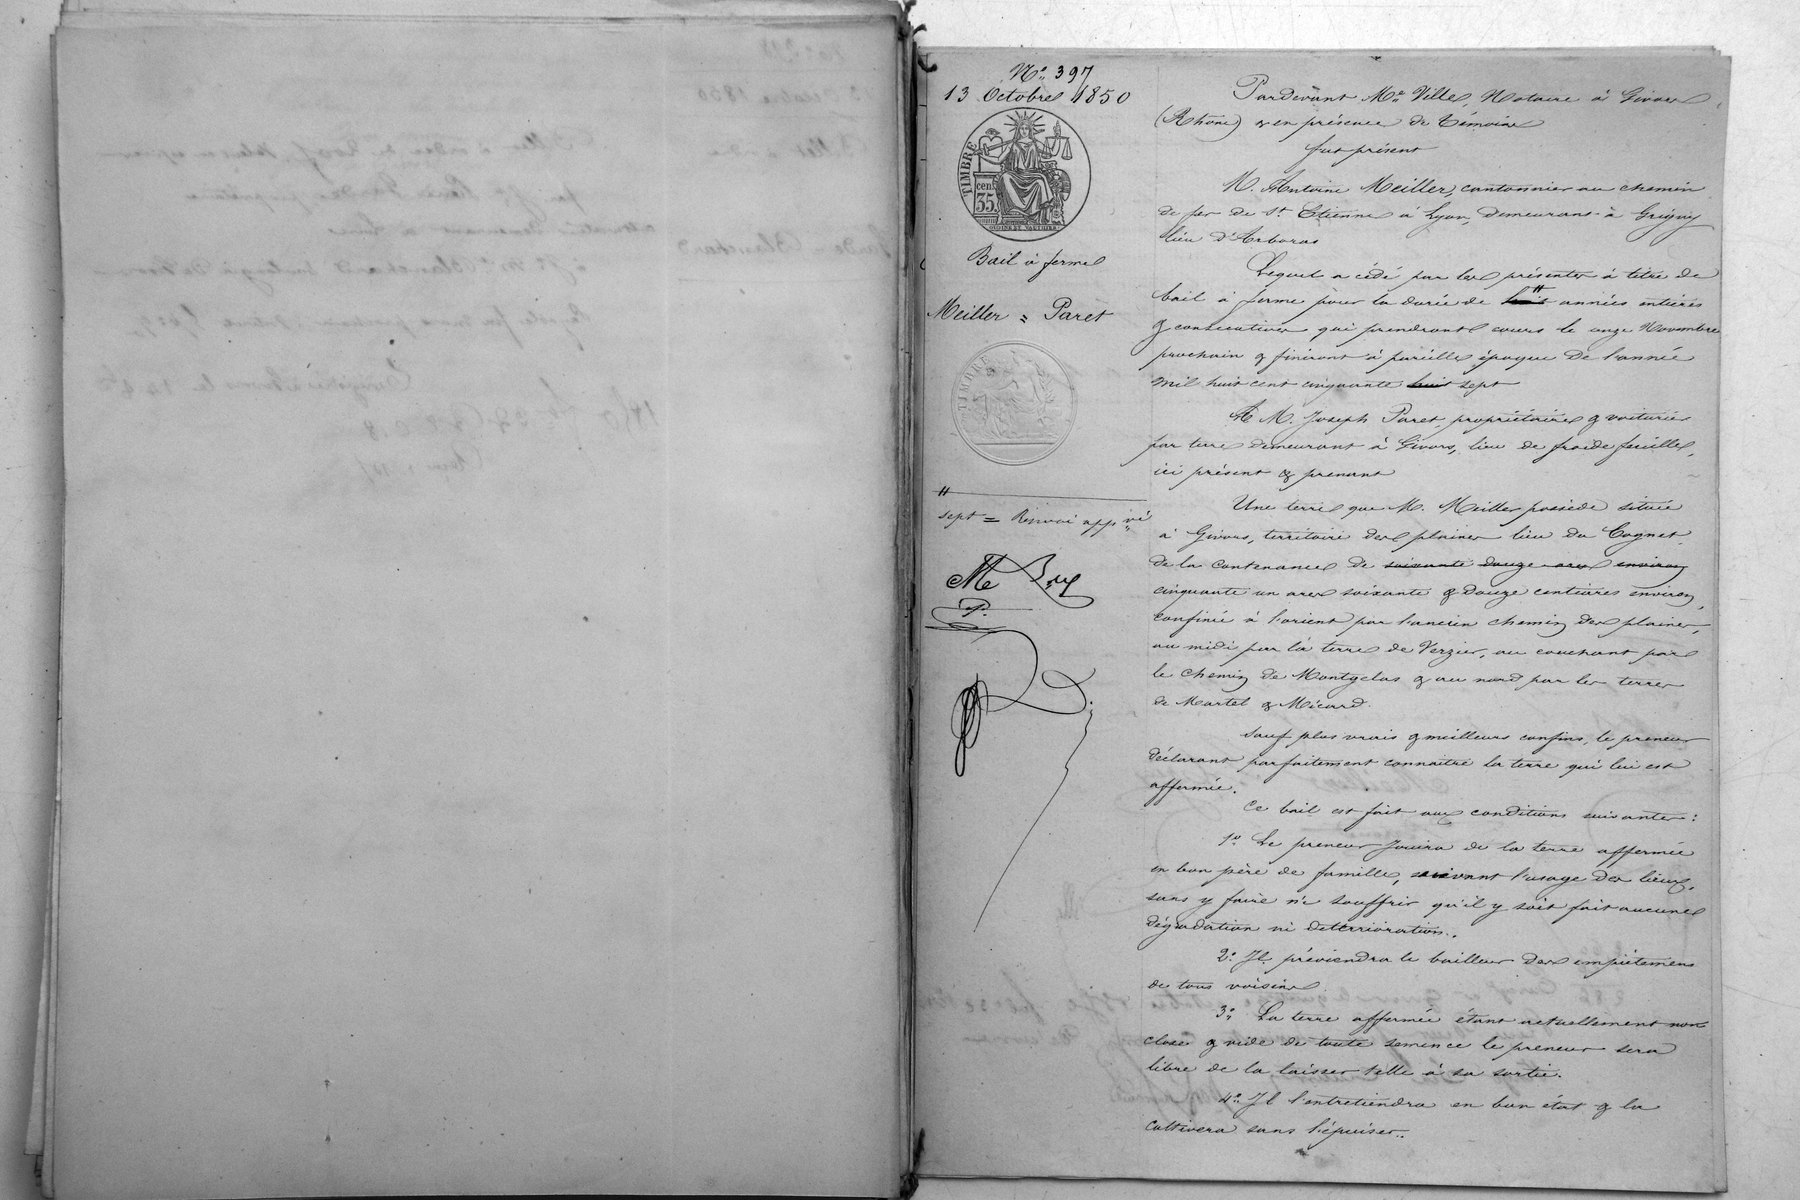 N° 397
13 Octobre 1850
TIMBRE
35 cen
Bail à ferme
Meiller = Paret
TIMBRE
sept = Renvoi app vé
Pardevant Me Ville, Notaire à Givors
(Rhône) & en présence de témoins
fut présent
M. Antoine Meiller, cantonnier au chemin
de fer de St Etienne à Lyon, demeurant à Grigny
lieu d'Arboras
Lequel a cédé par les présentes à titre de
bail à ferme pour la durée de huit années entières
& consécutives qui prendront cours le onze Novembre
prochain & finiront à pareille époque de l'année
mil huit cent cinquante huit sept
A M. Joseph Paret, propriétaire & voiturier
par terre demeurant à Givors, lieu de froide feuille,
ici présent & prenant
Une terre que M. Meiller possède située
à Givors, territoire des plaines lieu du Cognet
de la contenance de soixante douze ares environ
cinquante un ares soixante & douze centiares environ,
confinée à l'orient par l'ancien chemin des plaines,
au midi par la terre de Verzier, au couchant par
le chemin de Montgelas & au nord par les terres
de Martel & Micard.
Sauf plus vrais & meilleurs confins, le preneur
déclarant parfaitement connaître la terre qui lui est
affermée.
Ce bail est fait aux conditions suivantes :
1° Le preneur jouira de la terre affermée
en bon père de famille, suivant l'usage des lieux,
sans y faire ni souffrir qu'il y soit fait aucune
dégradation ni deterrioration.
2° Il préviendra le bailleur des empiétemens
de tous voisins.
3° La terre affermée étant actuellement non
close & vide de toute semence le preneur sera
libre de la laisser telle à sa sortie.
4° Il l'entretiendra en bon état & la
cultivera sans l'épuiser.